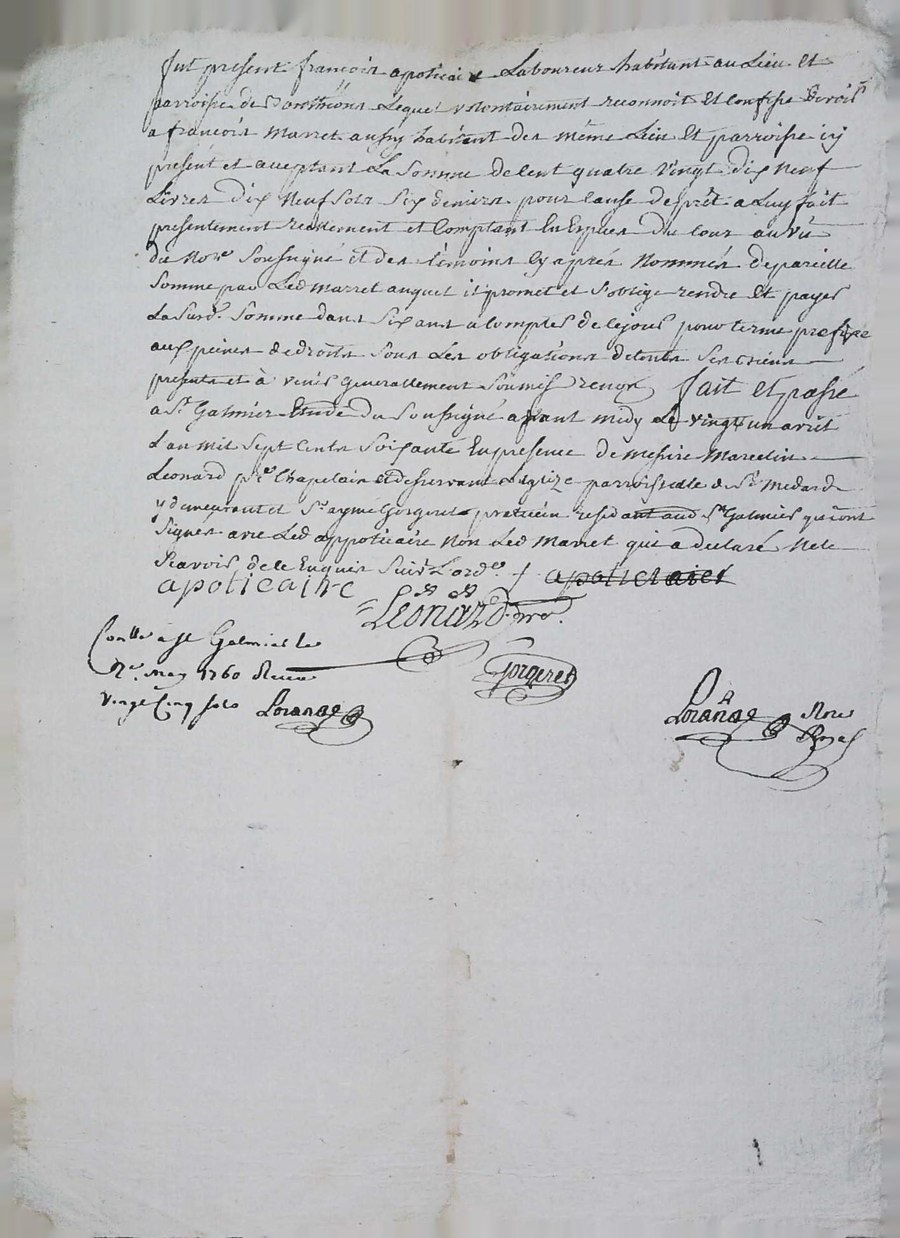 fut present françois apoticaire Laboureur habitant au Lieu Et
parroisse de Lequel volontairement reconnoit Et Confesse devoir
a françois Marret aussy habitant des même Lieu Et parroisse icy
present et acceptant La Somme de Cent quatre vingt dix Neuf
Livres dix Neuf Sols Six deniers pour Cause de prêt a Luy fait
presentement reellement et Comptant En Espèces du Cour au vû
du No.re Soussigné et des témoins Cy après Nommés de pareille
Somme par Led Marret auquel il promet et s'oblige rendre Et payer
La Susd. Somme dans Six ans a Compter de Ce jour pour terme prefixe
aux peines de droits Sous Les obligations de touts Ses biens
presents et à venir generallement Soumis renon fait et passé
a St. Galmier Etude du Soussigné avant midy Le vingt un avril
L'an Mil Sept Cents Soixante En presence de Messire Marcelin
Leonard p.re Chapelain Et desservant L'eglize parroissialle de St. Medard
y demeurant et Sr. ayme Gorgeret praticien residant aud St. Galmier qui ont
Signés avec Led appoticaire Non Led Marret qui a declaré Ne le
Scavoir de Ce Enquis Suiv. L'ord.ce
apoticaire
Leonard. pre.
Conllé a St Galmier le
May 1760 Receu
Gorgeret
vingt Cinq sols Loranas
Loranas No.re
Royal